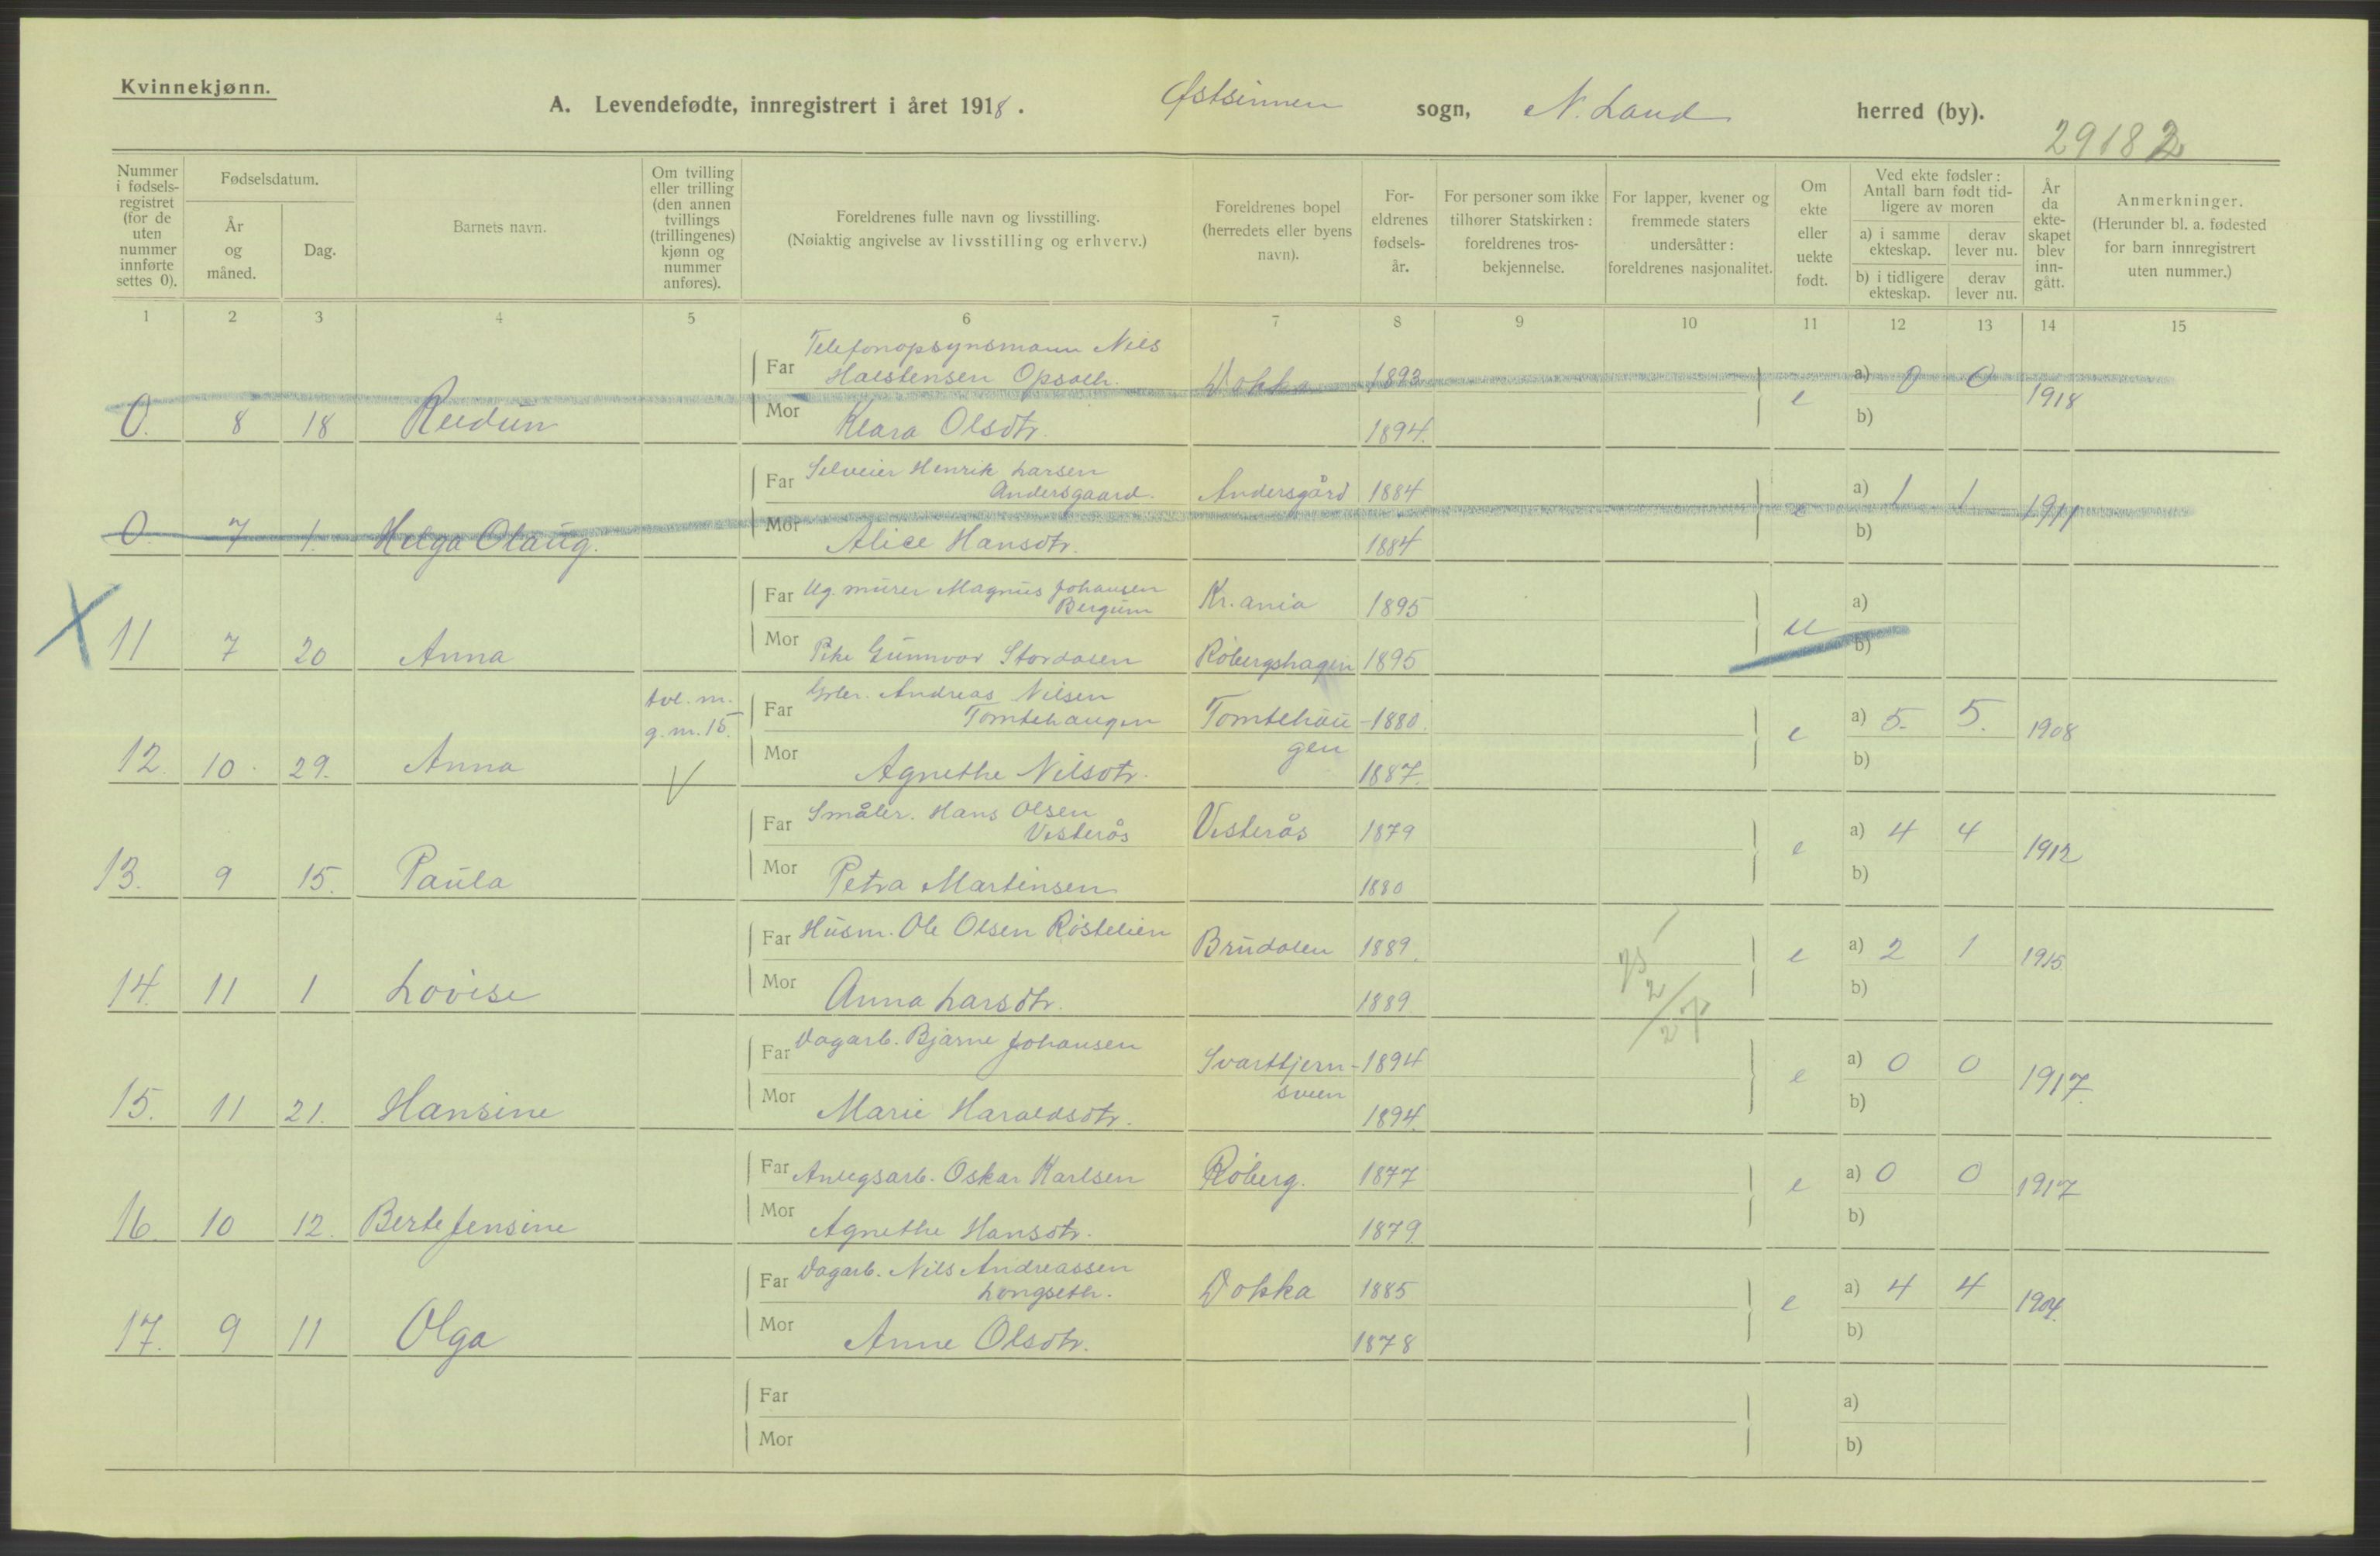 Kvinnekjønn.
A. Levendefødte, innregistrert i året 1918. Østsinnen sogn, N. Land herred (by).
29182
Nummer i fødsels-registret (for de uten nummer innførte settes 0).
Fødselsdatum.
År og måned.
Dag.
Barnets navn.
Om tvilling eller trilling (den annen tvillings (trillingenes) kjønn og nummer anføres).
Foreldrenes fulle navn og livsstilling.
(Nøiaktig angivelse av livsstilling og erhverv.)
Foreldrenes bopel (herredets eller byens navn).
For-eldrenes fødsels-år.
For personer som ikke tilhører Statskirken: foreldrenes tros-bekjennelse.
For lapper, kvener og fremmede staters undersåtter: foreldrenes nasjonalitet.
Om ekte eller uekte født.
Ved ekte fødsler: Antall barn født tid-ligere av moren
a) i samme ekteskap.
derav lever nu.
b) i tidligere ekteskap.
derav lever nu.
År da ekte-skapet blev inn-gått.
Anmerkninger.
(Herunder bl. a. fødested for barn innregistrert uten nummer.)
1 2 3 4 5 6 7 8 9 10 11 12 13 14 15
Telefonopsynsmann Nils
Far Halstensen Opsaeh. Dokka 1893 a) 0 0
0. 8 18 Reidun Mor Klara Olsdtr. 1894. e b) 1918
Far Selveier Henrik Larsen
Andersgaard. Andersgård 1884 a) 1 1
0. 7 1. Helga Olaug. Mor Alice Hansdtr. 1884 e b) 1911
Far Ug. murer Magnus Johansen
Bergum Kr.ania 1895 a)
X 11 7 20 Anna Mor Pike Gunnvor Stordalen Robergshagen 1895 u b)
tvl. m. Far Andreas Nilsen
g. m. 15. Tomtehaugen Tomtehau- 1880. a) 5. 5.
12. 10. 29. Anna V Mor Agnethe Nilsdtr. gen 1887. e b) 1908
Far Småbr. Hans Olsen
Vesterås Vesterås 1879 a) 4 4
13. 9 15. Paula Mor Petra Martinsen 1880 e b) 1912
Far Husm. Ole Olsen Røstelien Brudalen 1889. a) 2 1
14. 11 1 Lovise Mor Anna Larsdtr. 1889 e b) 1915
Far Dagarb. Bjarne Johansen Svarttjern- 1894 a) 0 0
15. 11 21. Hansine Mor Marie Haraldsdtr. sveen 1894. e b) 1917.
Far Anlegsarb. Oskar Karlsen Roberg. 1877 a) 0 0
16. 10 12. Berte Jensine Mor Agnethe Hansdtr. 1879. e b) 1917
Far Dagarb. Nils Andreassen
Longseth. Dokka 1885 a) 4 4
17. 9 11 Olga Mor Anne Olsdtr. 1878 e b) 1904.
Far a)
Mor b)